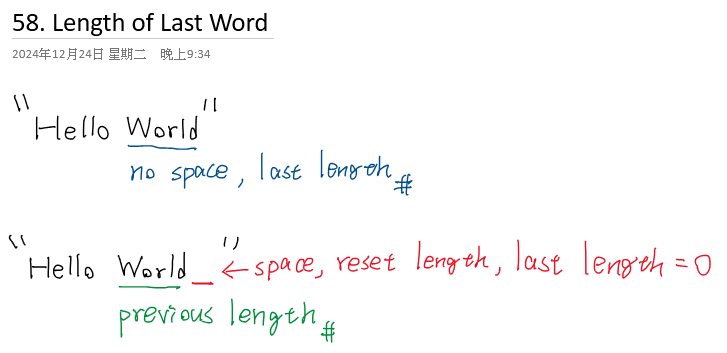 58. Length of Last Word
2024年12月24日 星期二 晚上9:34
"Hello World"
no space, last length #
"Hello World_" ← space, reset length, last length = 0
previous length #